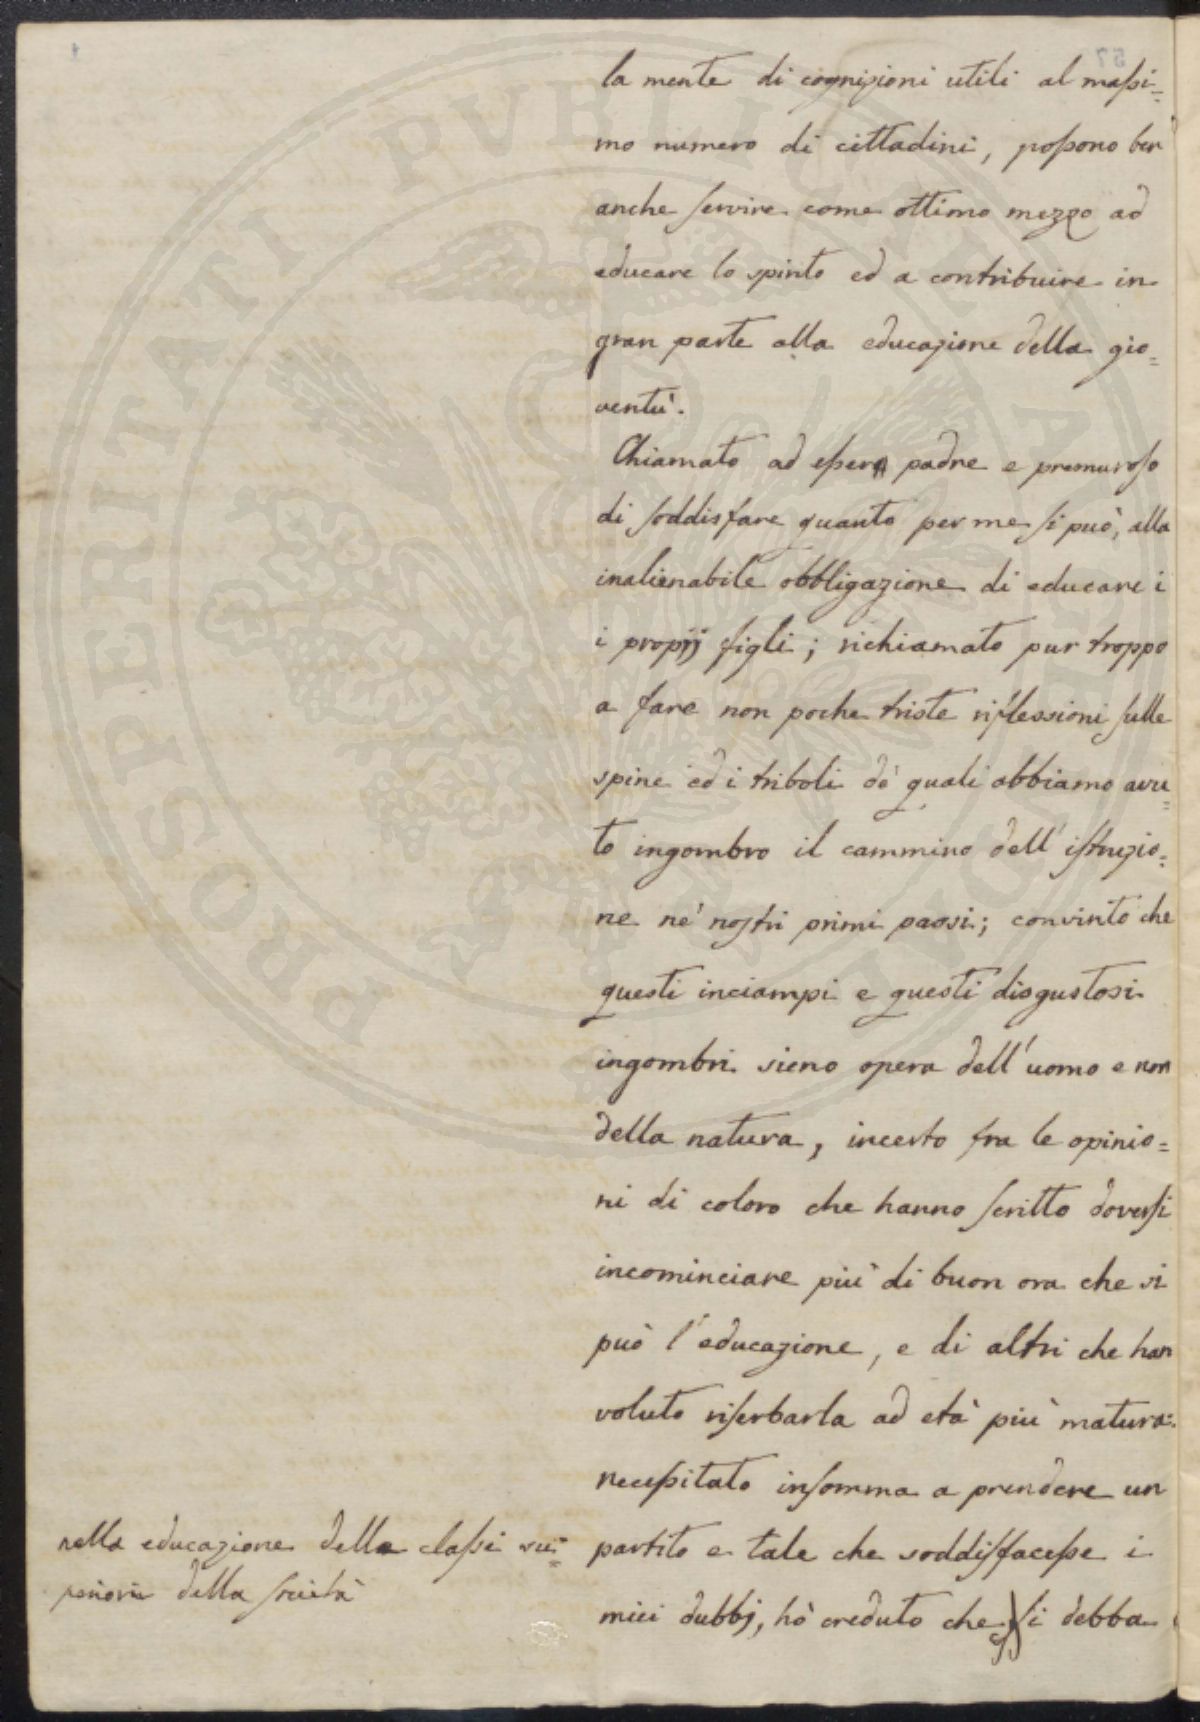 la mente di cognizioni utili al massi=
mo numero di cittadini, possono ben
anche servire come ottimo mezzo ad
educare lo spirito ed a contribuire in
gran parte alla educazione della gio=
ventù.
Chiamato ad essere padre e premuroso
di soddisfare quanto per me si può, alla
inalienabile obbligazione di educare i
i proprj figli; richiamato pur troppo
a fare non poche triste riflessioni sulle
spine ed i triboli de' quali abbiamo avu=
to ingombro il cammino dell'istruzio=
ne ne' nostri primi passi; convinto che
questi inciampi e questi disgustosi
ingombri sieno opera dell'uomo e non
della natura, incerto fra le opinio=
ni di coloro che hanno scritto doversi
incominciare più di buon ora che si
può l'educazione, e di altri che han
voluto riserbarla ad età più matura:
necessitato insomma a prendere un
partito e tale che soddisfacesse i
miei dubbj, hò creduto che si debba
nella educazione delle classi su=
periori della società
PROSPERITATI PVBLICAE